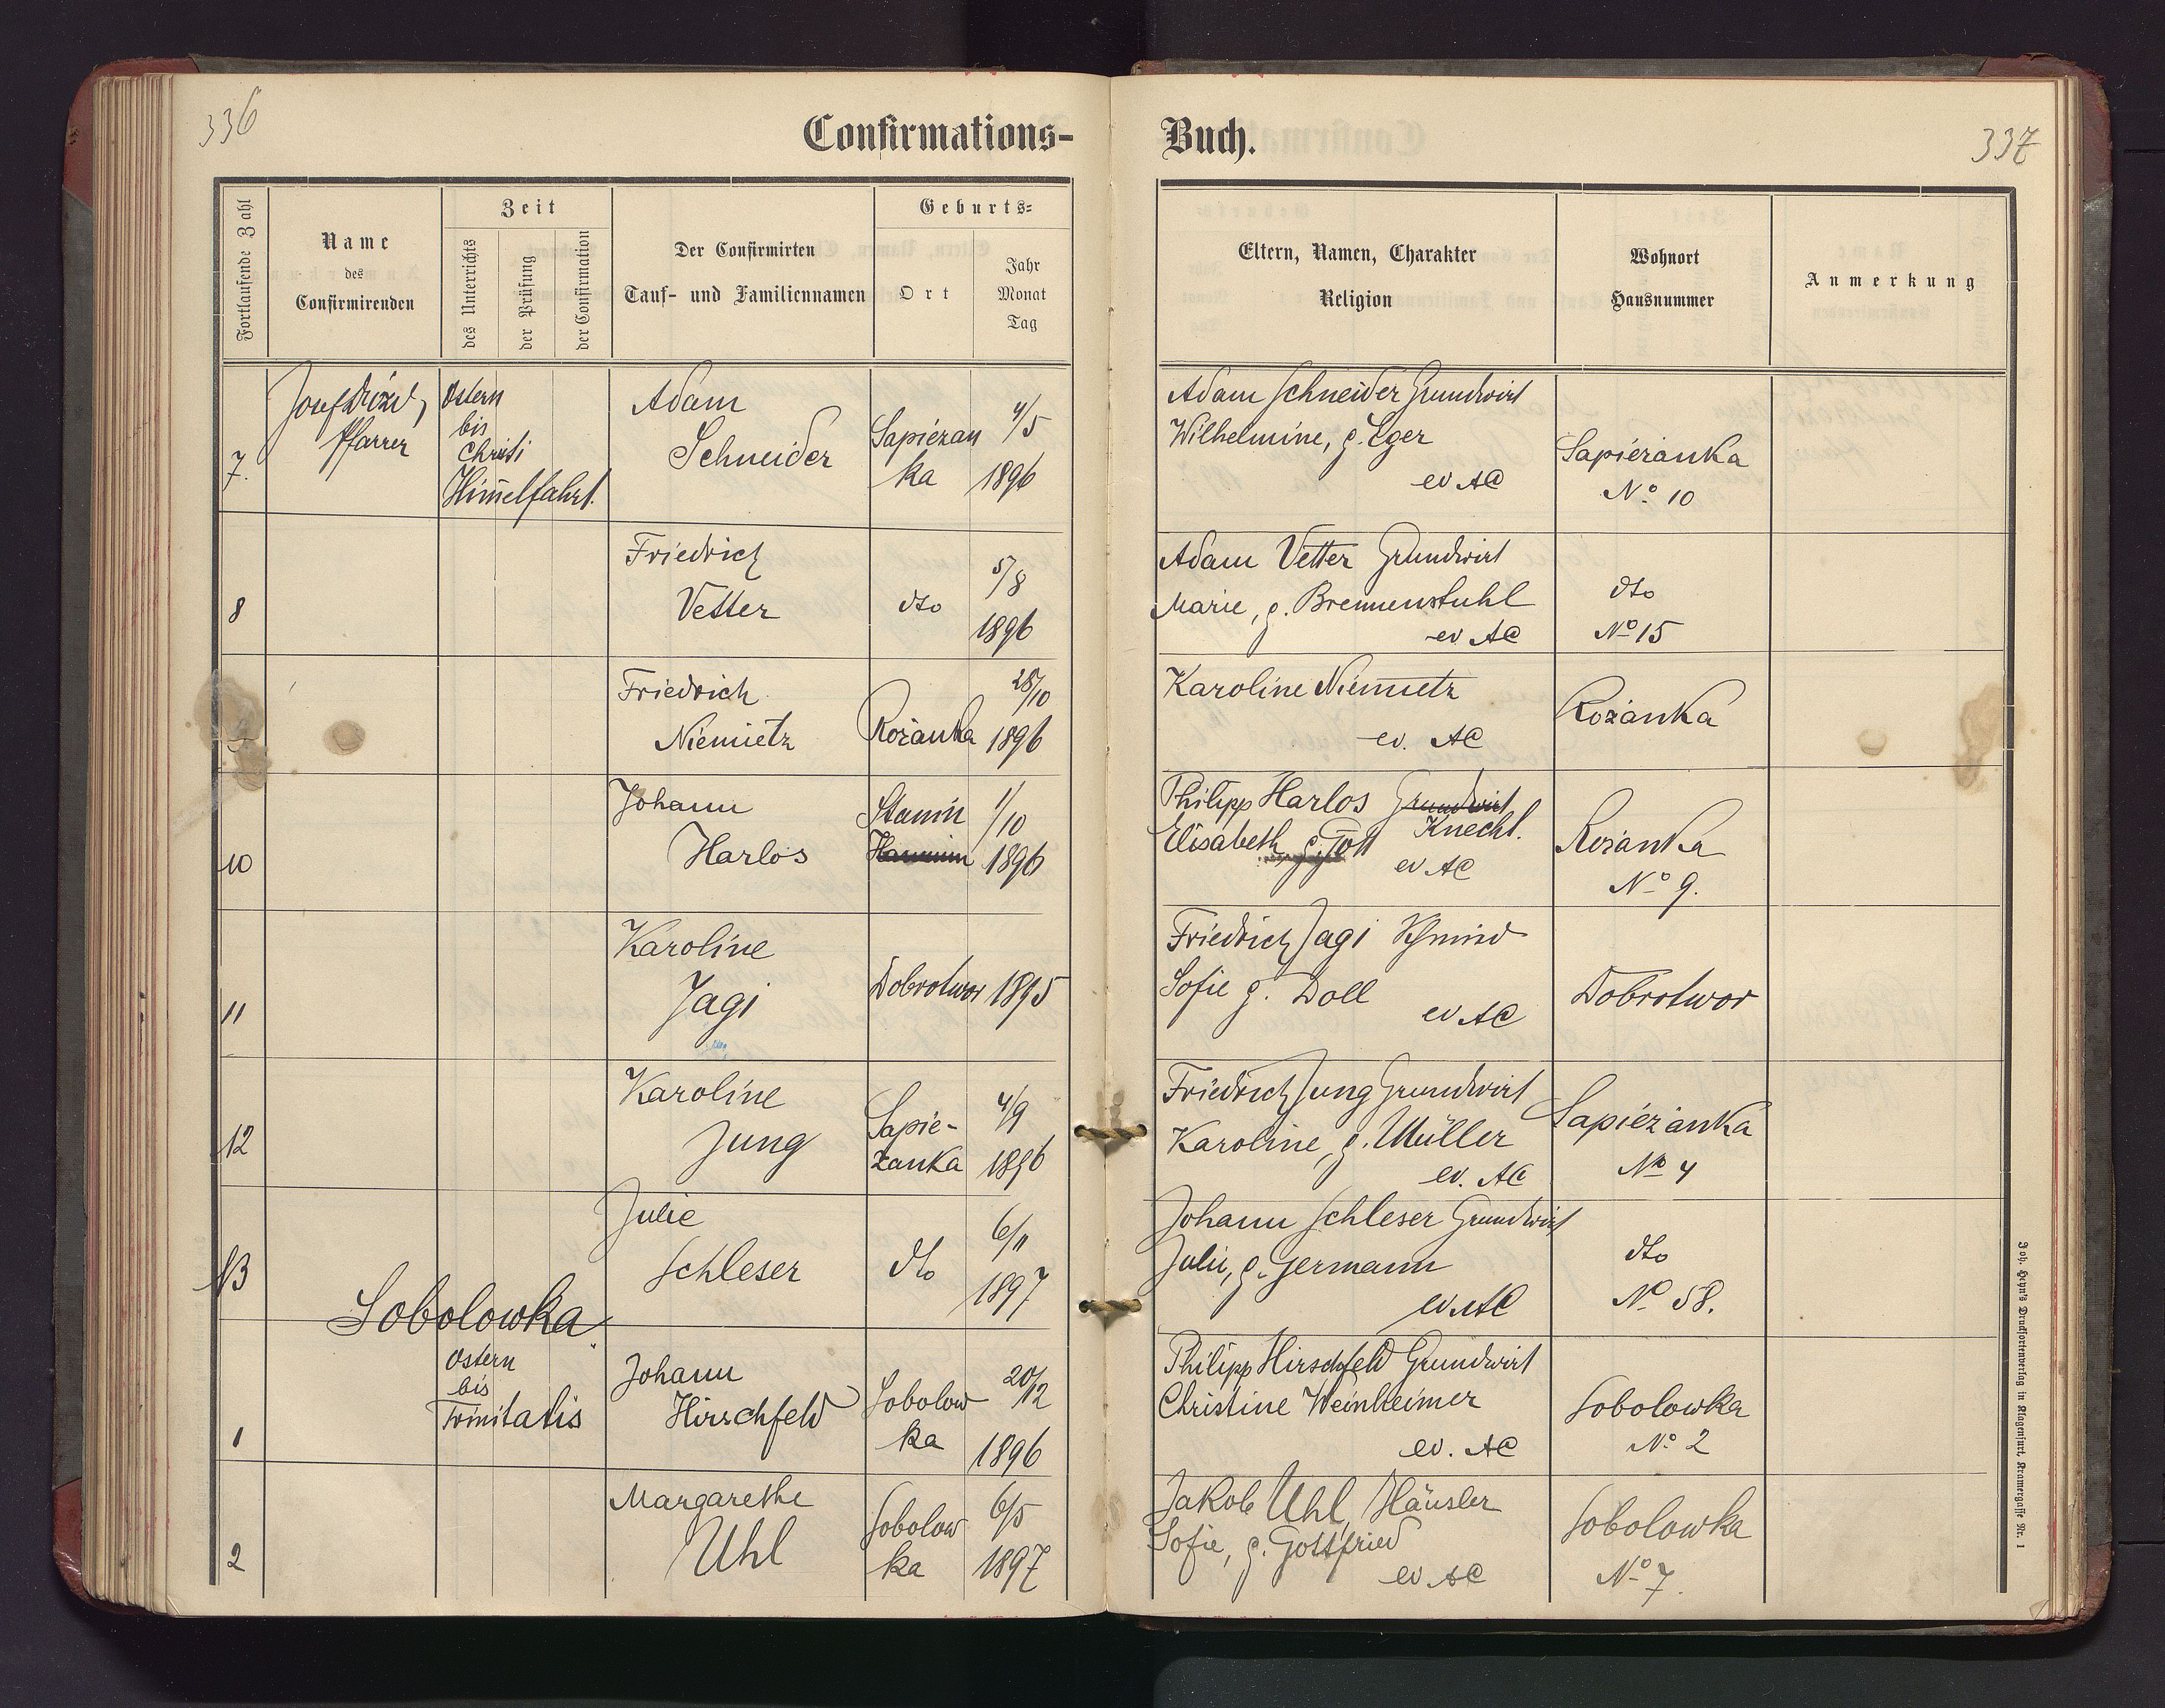 336
337
Confirmations-Buch.
Fortlaufende Zahl
Name
des
Confirmirenden
Zeit
des Unterrichts
der Prüfung
der Confirmation
Der Confirmirten
Tauf- und Familiennamen
Geburts-
Ort
Jahr
Monat
Tag
Eltern, Namen, Charakter
Religion
Wohnort
Hausnummer
Anmerkung
7.
Josef
Pfarrer
Ostern
bis
Christi
Him̅elfahrt.
Adam
Schneider
Sapiezan
ka
4/5
1896
Adam Schneider Grundwirt
Wilhelmine, g. Eger
ev AC
Sapiezanka
No 10
8
Friedrich
Vetter
dto
5/8
1896
Adam Vetter Grundwirt
Marie, g. Brennenstuhl
ev AC
dto
No 15
Friedrich
Niemietz
Rożanka
28/10
1896
Karoline Niemietz
ev. AC
Rożanka
10
Johann
Harlos
Stanin
1/10
1896
Philipp Harlos Grundwirt
Knecht.
Elisabeth g.
ev AC
Rożanka
No 9.
11
Karoline
Jagi
Dobrotwor
1895
Friedrich Jagi Schmied
Sofie g. Doll
ev AC
Dobrotwor
12
Karoline
Jung
Sapie-
zanka
4/9
1896
Friedrich Jung Grundwirt
Karoline, g. Müller
ev. AC
Sapiezanka
No 4
13
Julie
Schleser
dto
6/11
1897
Johann Schleser Grundwirt
Julie, g. Germann
ev. AC
dto
No 58.
Sobolowka
1
Ostern
bis
Trinitatis
Johann
Hirschfeld
Sobolow
ka
20/12
1896
Philipp Hirschfeld Grundwirt
Christine Weinheimer
ev. AC
Sobolowka
No 2
2
Margarethe
Uhl
Sobolow
ka
6/5
1897
Jakob Uhl, Häusler
Sofie, g. Gottfried
ev AC
Sobolowka
No 7.
Joh. Heyn's Drucksortenverlag in Klagenfurt, Kramergasse Nr. 1